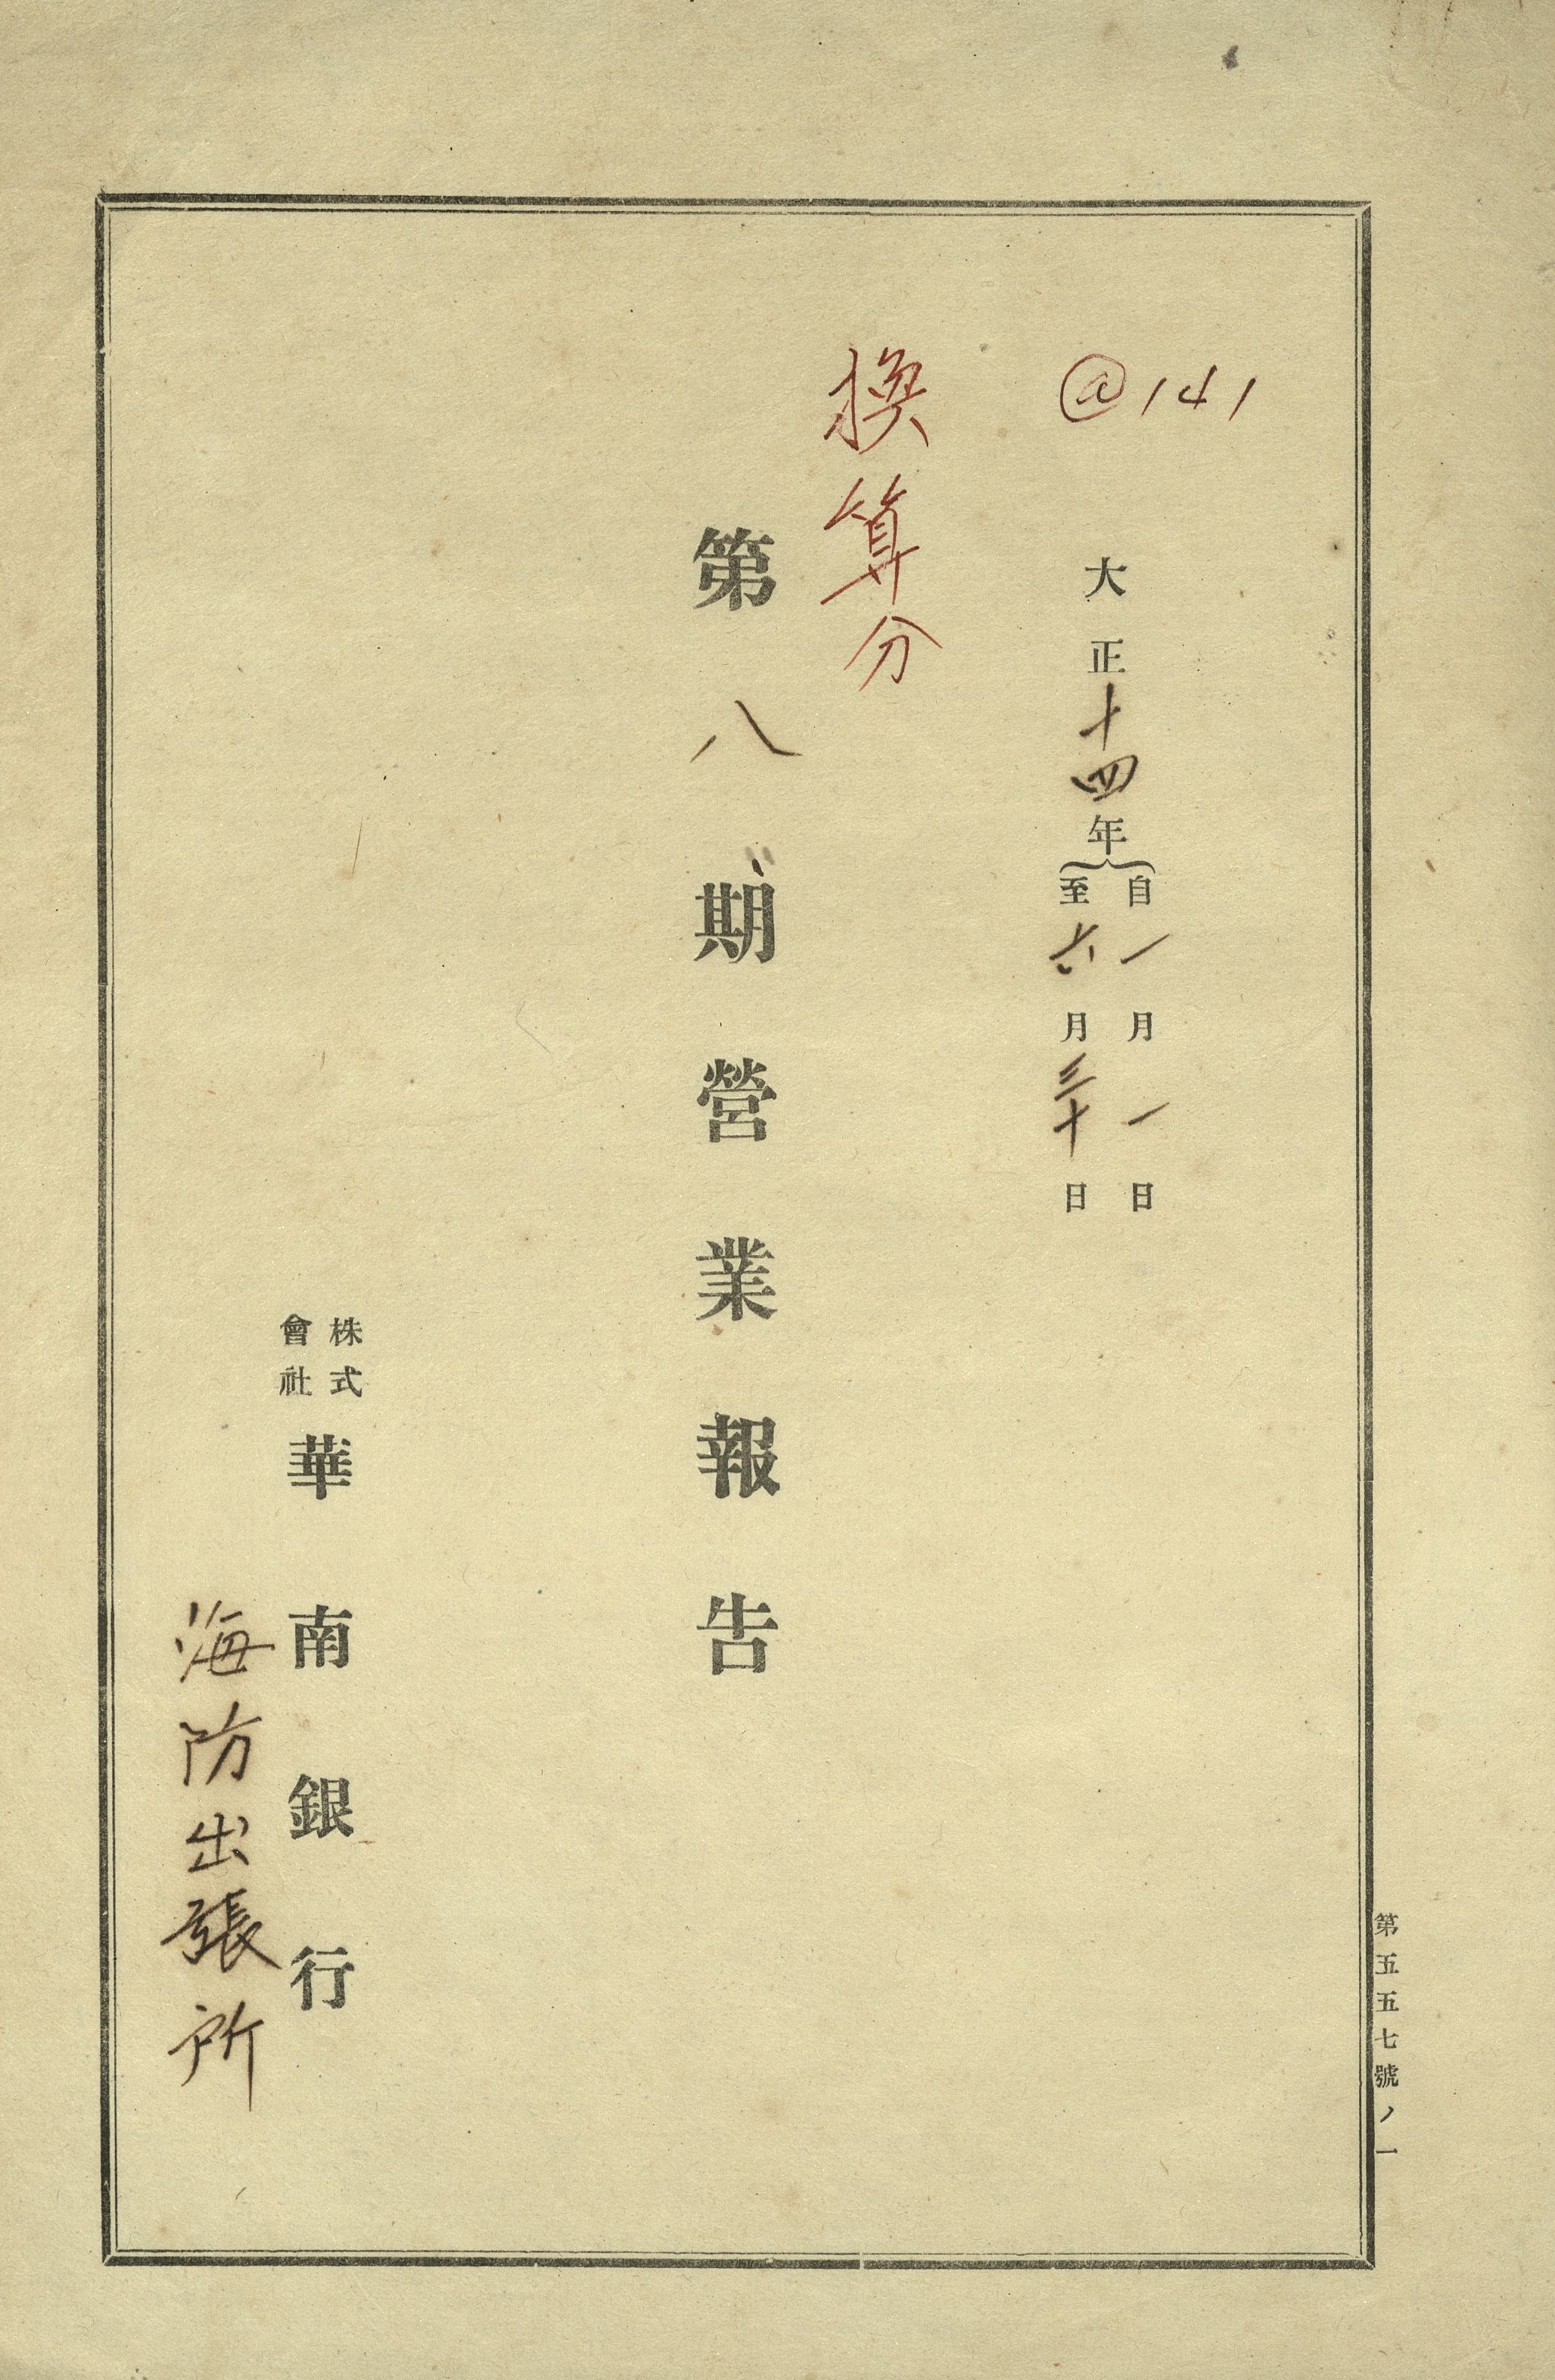 @141
大正十四年
自一月一日
至六月三十日
換算分
第八期營業報告
株式
會社
華南銀行
海防出張所
第五五七號ノ一